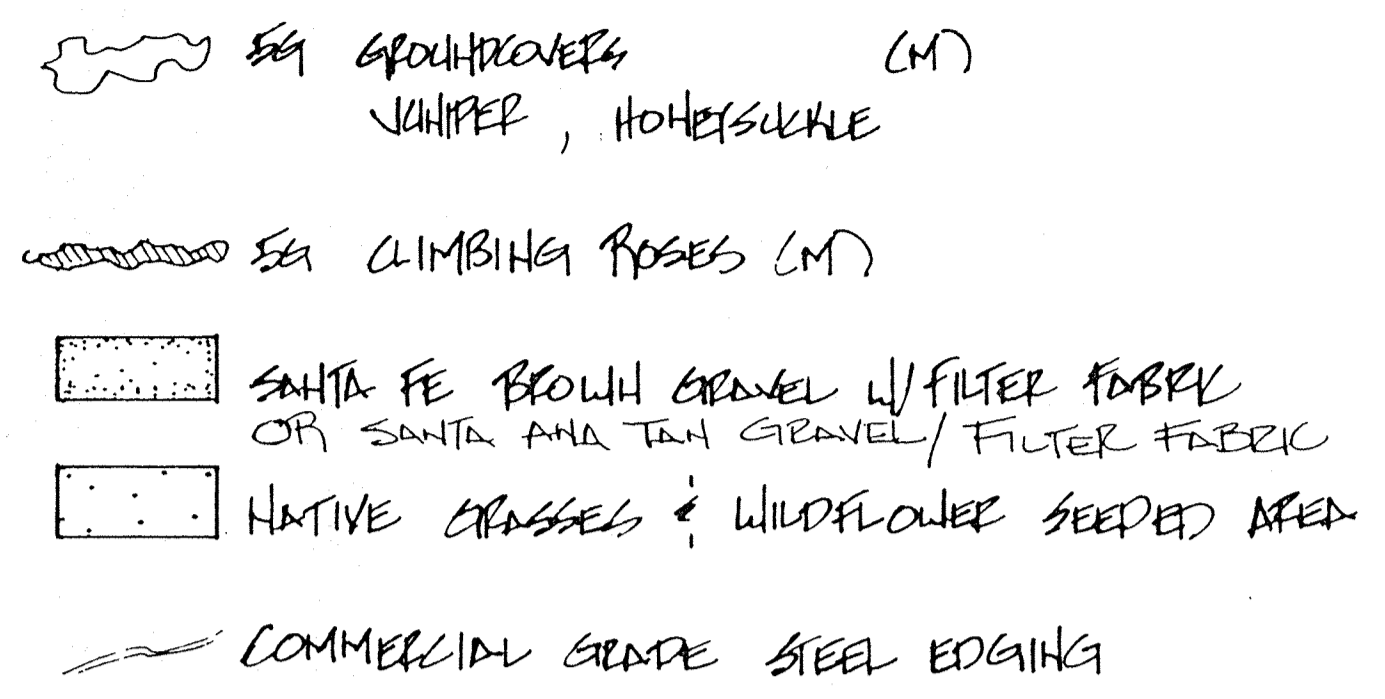 5G GROUNDCOVERS (M)
JUNIPER , HONEYSUCKLE
5G CLIMBING ROSES (M)
SANTA FE BROWN GRAVEL W/ FILTER FABRIC
OR SANTA ANA TAN GRAVEL/ FILTER FABRIC
NATIVE GRASSES & WILDFLOWER SEEDED AREA
COMMERCIAL GRADE STEEL EDGING